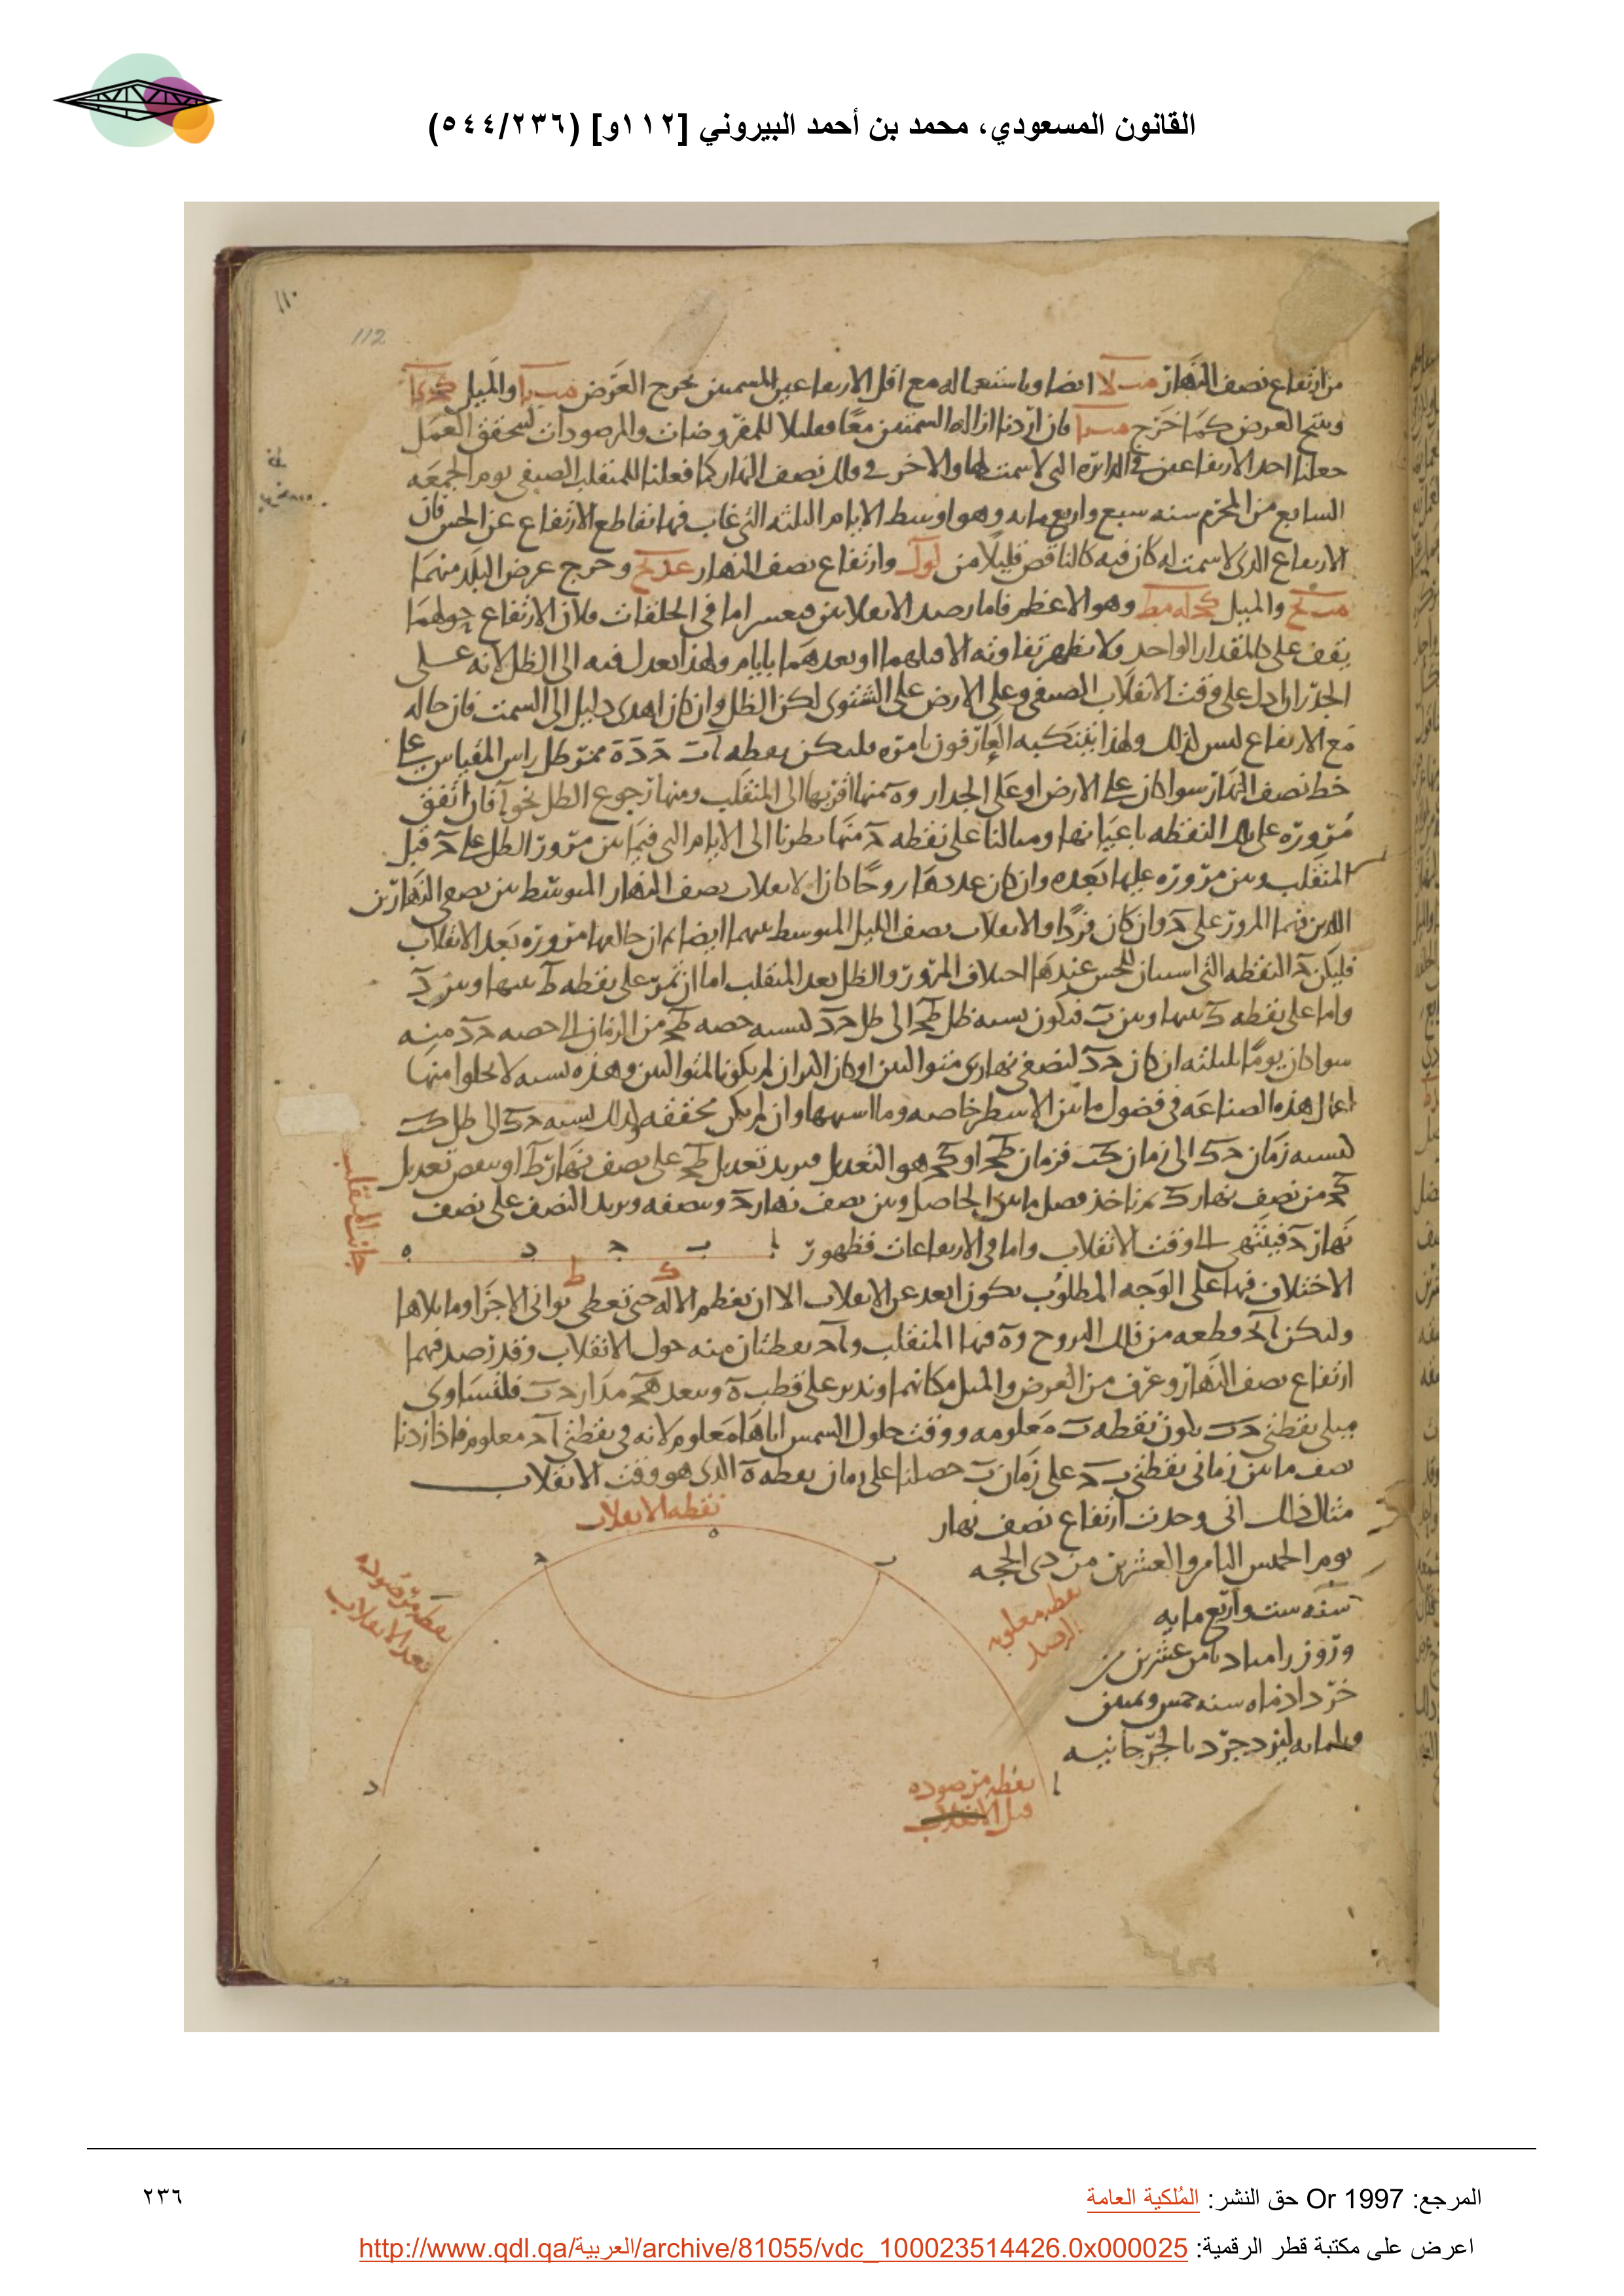 القانون المسعودي، محمد بن أحمد البيروني [١١٢و] (٥٤٤/٢٣٦)
١١٠
112
من ارتفاع نصف النهار مب لا ايضا وباستعماله مع اقل الارتفاعين المسمتين يخرج العرض والميل
وينتج العرض كما خرج فان اردنا ازالة السمتين معا للمفروضات والمرصودات لتحقق العمل
جعلنا احد الارتفاعين في الدائره التي لا سمت لها والاخر في فلك نصف النهار كما فعلنا للمنقلب الصيفي يوم الجمعه
السابع من المحرم سنه سبع واربع مايه وهو اوسط الايام الثلثه التي غاب فيها تقاطع الارتفاع عن الحس فان
الارتفاع الذي لا سمت له كان فيه كالناقص قليلا من لو ل وارتفاع نصف النهار وخرج عرض البلد منهما
والميل كج له مط وهو الاعظم فاما رصد الانقلابين فيعسر اما في الحلقات فلان الارتفاع حولهما
يقف على المقدار الواحد ولا يظهر تفاوته الا قبلهما او بعدهما بايام ولهذا يعدل فيه الى الظل لانه على
الجدران ادل على وقت الانقلاب الصيفي وعلى الارض على الشتوي لكن الظل وان كان اهدى دليل الى السمت فان حاله
مع الارتفاع ليس كذلك ولهذا فليكن نقطه ا ب ج د ه ممر ظل راس المقياس على
خط نصف النهار سوا كان على الارض او على الجدار و ه منها اقربها الى المنقلب ومنها رجوع الظل نحو ا فان اتفق
مروره على تلك النقطه باعيانها ومثالنا على نقطه د منها نظرنا الى الايام التي فيما بين مرور الظل على د قبل
المنقلب وبين مروره عليها بعده وان كان عددها زوجا كان الانقلاب نصف النهار المتوسط بين نصفي النهارين
الذين فيهما المرور على د وان كان فردا فالانقلاب نصف الليل المتوسط بينهما ايضا حالها مروره بعد الانقلاب
فليكن د النقطه التي استبان للحس عندها اختلاف المرور والظل بعد المنقلب اما ان تمر على نقطه ط بينها وبين د
واما على نقطه ك بينها وبين ب فتكون نسبه ظل ط ج الى ظل ج د كنسبه حصه ط ج من الزمان الى حصه ج د منه
سوا كان يوما بليلته ان كان ج د لنصفي نهارين متواليين او كان اكثر ان لم يكونا المتواليين وهذه نسبه لا يخلوا منها
اعمال هذه الصناعه في فضول ما بين الاسطر خاصه وما اشبهها وان لم يكن محققه وكذلك نسبه ج ك الى ظل ك ب
كنسبه زمان ج ك الى زمان ك ب فزمان ط ج او ك ج هو التعديل فنزيد تعديل ط ج على نصف نهار ط او ننقص تعديل
ك ج من نصف نهار ك ثم ناخذ فضل ما بين الحاصل وبين نصف نهار ج وننصفه ونزيد النصف على نصف
نهار ج فينتهي الى وقت الانقلاب واما في الارتفاعات فظهور
ا ب ج د ه
ك ط
جانب المنقلب
الاختلاف فيها على الوجه المطلوب يكون ابعد عن الانقلاب الا ان تعظم الاله حتى تعطي ثواني الاجزا وما يلاها
وليكن ا د قطعه من فلك البروج و ه فيها المنقلب و ا د نقطتان منه حول الانقلاب وقد رصد فيهما
ارتفاع نصف النهار وعرف من العرض والميل مكانهما وندير على قطب ه وببعد ه ج مدار ج ب فلتساوى
ميلي نقطتي ج ب يكون نقطه ب معلومه ووقت حلول الشمس اياها معلوم لانه في نقطتي ا د معلوم فاذا زدنا
نصف ما بين زماني نقطتي ب ج على زمان ب حصلنا على زمان نقطه ه الذي هو وقت الانقلاب
مثال ذلك اني وجدت ارتفاع نصف نهار
يوم الخميس الثامن والعشرين من ذي الحجه
سنه ست واربع مايه
وروز رامياد ثامن عشرين من
خرداد ماه سنه خمس وثمنين
وثلثمايه ليزدجرد بالجرجانيه
نقطه الانقلاب
ه
ج
ب
نقطه مرصوده
بعد الانقلاب
نقطه معلومه
الرصد
د
ا
نقطه مرصوده
قبل الانقلاب
المرجع: Or 1997 حق النشر: المُلكية العامة
٢٣٦
اعرض على مكتبة قطر الرقمية: http://www.qdl.qa/العربية/archive/81055/vdc_100023514426.0x000025